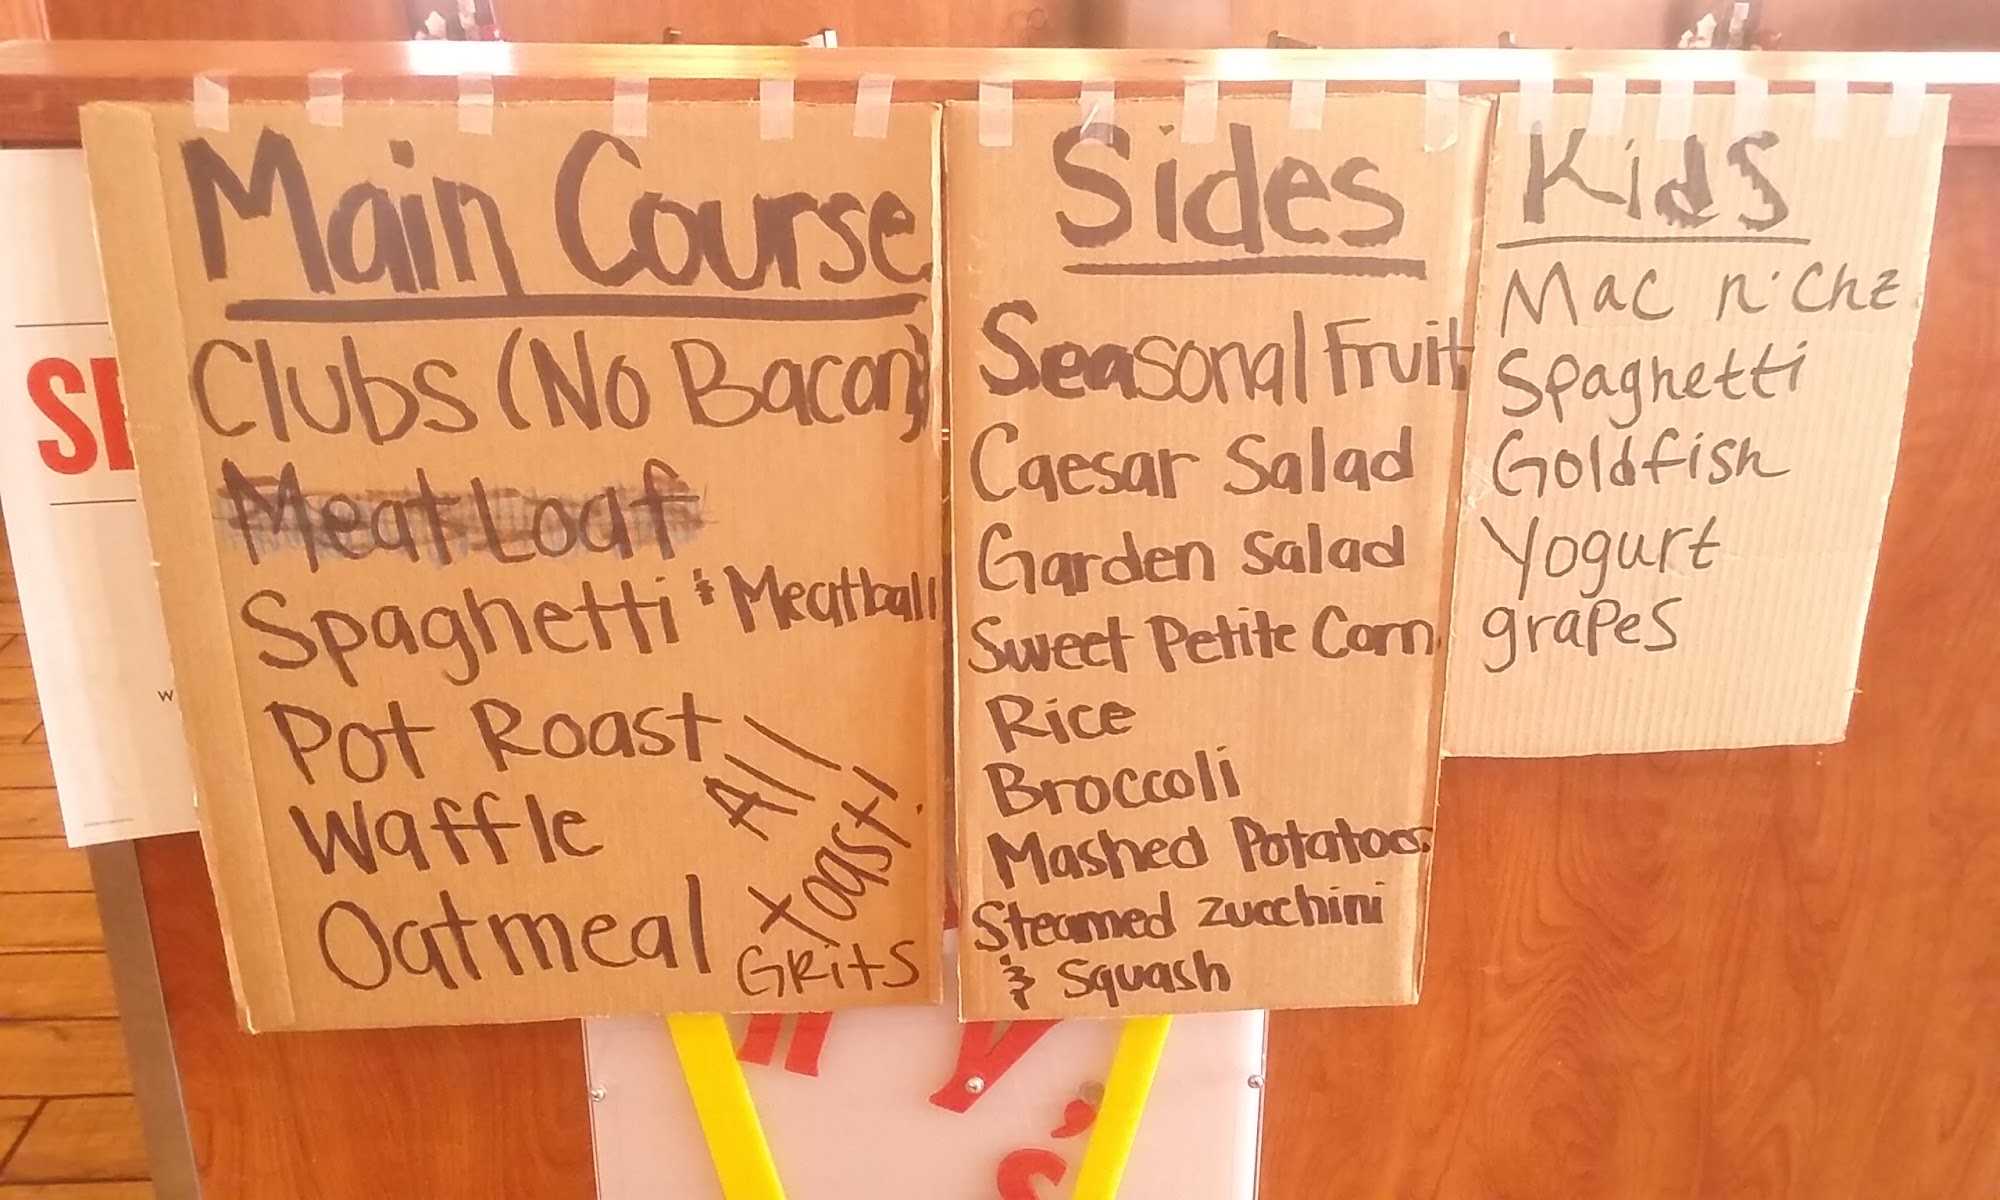 Main Course
Clubs (No Bacon)
Meat Loaf
Spaghetti & Meatball
Pot Roast
Waffle
Oatmeal
All
Toast!
Grits
Sides
Seasonal Fruit
Caesar Salad
Garden Salad
Sweet Petite Corn
Rice
Broccoli
Mashed Potatoes
Steamed Zucchini
& Squash
Kids
Mac n' Chz
Spaghetti
Goldfish
Yogurt
grapes